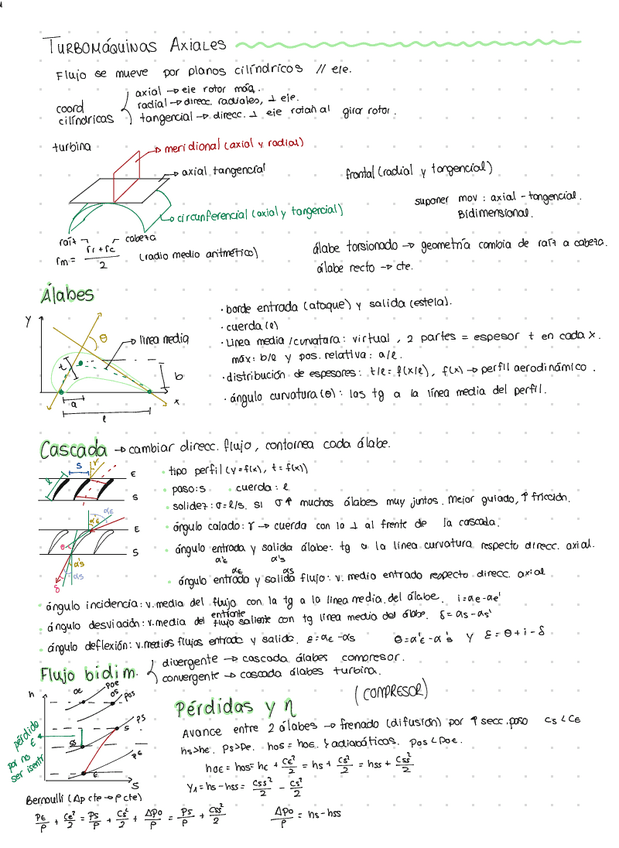 TURBOMÁQUINAS AXIALES
Flujo se mueve por planos cilíndricos // eje.
coord cilíndricos
axial → eje rotor máq.
radial → direcc. radiales, ⊥ eje.
tangencial → direcc. ⊥ eje rotan al girar rotor.
turbina
meridional (axial y radial)
axial tangencial
frontal (radial y tangencial)
circunferencial (axial y tangencial)
suponer mov: axial - tangencial.
Bidimensional.
raíz
cabeza
rm = (rr + rc)/2 (radio medio aritmético)
álabe torsionado → geometría cambia de raíz a cabeza.
álabe recto → cte.
Álabes
y
θ
línea media
t
b
a
x
l
· borde entrada (ataque) y salida (estela).
· cuerda (l)
· Línea media / curvatura: virtual, 2 partes = espesor t en cada x.
máx: b/l y pos. relativa: a/l.
· distribución de espesores: t/l = f(x/l), f(x) → perfil aerodinámico.
· ángulo curvatura (θ): los tg a la línea media del perfil.
Cascada → cambiar direcc. flujo, contornea cada álabe.
s
γ
E
S
· tipo perfil (y=f(x), t=f(x))
· paso: s cuerda: l
· solidez: σ=l/s, si σ↑ muchos álabes muy juntos. Mejor guiado, ↑ fricción.
· ángulo calado: γ → cuerda con la ⊥ al frente de la cascada.
αE
α'E
E
S
θ
α's
αs
δ
· ángulo entrada y salida álabe: tg a la línea curvatura respecto direcc. axial.
α'E α's
αE αs
· ángulo entrada y salida flujo: v. medio entrada respecto direcc. axial
· ángulo incidencia: v. media del flujo con la tg a la línea media del álabe. i=αe-αe'
· ángulo desviación: v. media del flujo saliente con tg línea media del álabe. δ=αs-αs'
entrante
· ángulo deflexión: v. medios flujos entrada y salida. ε=αE-αs θ=α'E-α's y ε=θ+i-δ
Flujo bidim.
divergente → cascada álabes compresor.
convergente → cascada álabes turbina.
h
oE
POE
os
Pos
Ps
s
ss
PE
E
S
pérdida por no ser isentr
Pérdidas y η (COMPRESOR)
Avance entre 2 álabes → frenado (difusión) por ↑ secc. paso Cs<CE
hs>hE. Ps>PE. hos=hoE. } adiabáticos. Pos<POE.
hoE = hos = hE + CE²/2 = hs + Cs²/2 = hss + Css²/2
YA = hs - hss = Css²/2 - Cs²/2
Bernoulli (Δp cte → ρ cte)
PE/ρ + CE²/2 = Ps/ρ + Cs²/2 + ΔPo/ρ = Ps/ρ + Css²/2
ΔPo/ρ = hs - hss